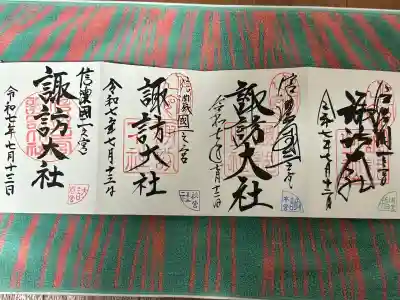 信濃國一之宮
諏訪大社
令和七年七月十二日
信濃國一之宮
諏訪大社
令和七年七月十二日
信濃國一之宮
諏訪大社
令和七年七月十二日
信濃國一之宮
諏訪大社
令和七年七月十三日